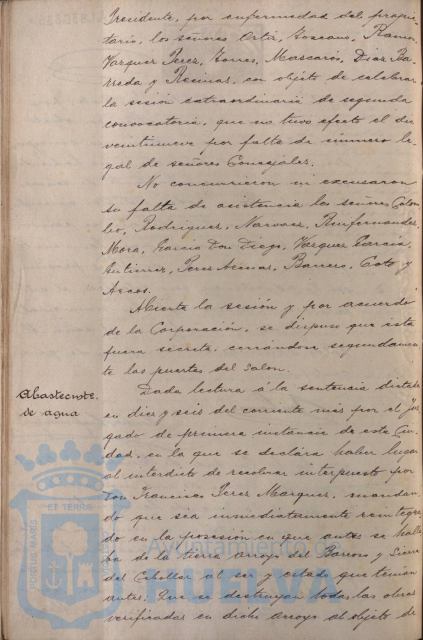 Presidente, por enfermedad del propie-
tario, los señores Ortiz, Toscano, Ramos,
Vazquez Perez, Torres, Mascarós, Diaz Ba-
rreda y Recimar, con objeto de celebrar
la sesión extraordinaria de segunda
convocatoria, que no tuvo efecto el dia
veintinueve por falta de número le-
gal de señores Concejales.
No concurrieron ni excusaron
su falta de asistencia los señores Colom-
bo, Rodriguez, Narvaez, Benfernandez,
Mora, Garcia Don Diego, Vazquez Garcia,
Gutierrez, Perez Aznar, Barrero, Coto y
Arcos.
Abierta la sesión y por acuerdo
de la Corporación, se dispuso que ésta
fuera secreta, cerrándose seguidamen-
te las puertas del Salon.
Abastecmte.
de agua
Dada lectura á la sentencia dictada
en diez y seis del corriente mes por el Juz-
gado de primera instancia de esta Ciu-
dad, en la que se declara haber lugar
al interdicto de recobrar interpuesto por
Don Francisco Perez Marquez, mandan-
do que sea inmediatamente reintegra-
do en la posesión en que antes se halla-
ba de la tierra arroyo del Barroso y Sierra
del Caballar al ser y estado que tenian
antes, Que se destruyan todas las obras
verificadas en dicho arroyo al objeto de
PORTUS MARIS
ET TERRÆ
Ayuntamiento de
HUELVA